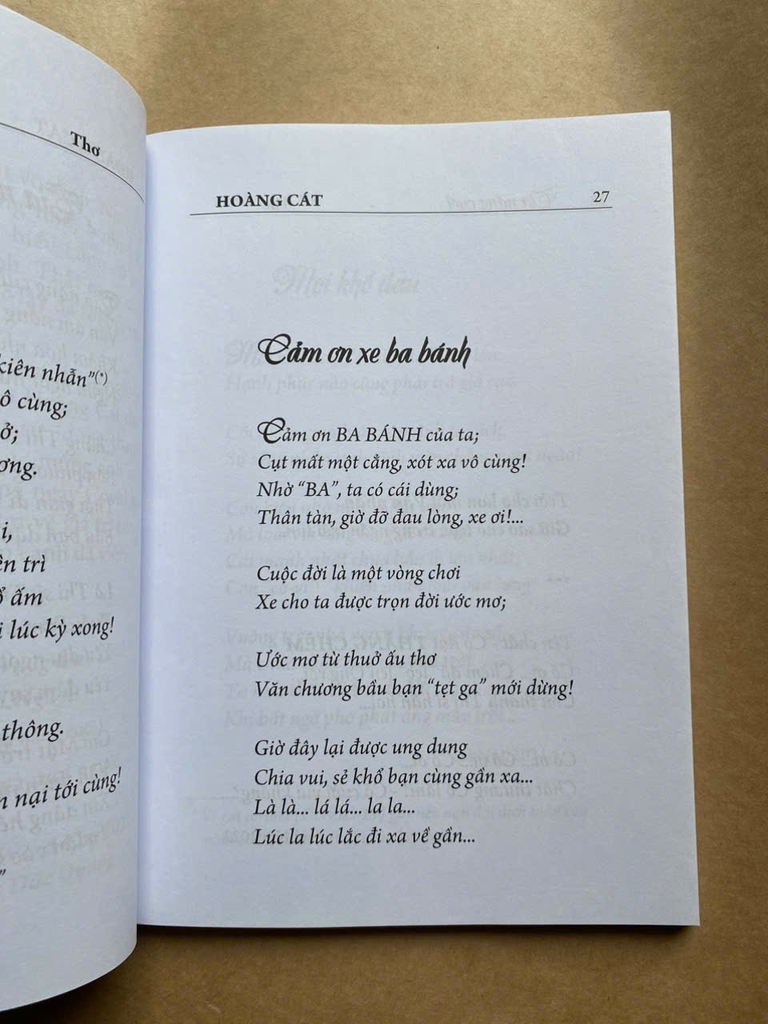 Thơ
kiên nhẫn"(*)
ô cùng;
ở;
ơng.
i,
ên trì
ổ ấm
i lúc kỳ xong!
thông.
n nại tới cùng!
"
HOÀNG CÁT 27
Cảm ơn xe ba bánh
Cảm ơn BA BÁNH của ta;
Cụt mất một cẳng, xót xa vô cùng!
Nhờ "BA", ta có cái dùng;
Thân tàn, giờ đỡ đau lòng, xe ơi!...
Cuộc đời là một vòng chơi
Xe cho ta được trọn đời ước mơ;
Ước mơ từ thuở ấu thơ
Văn chương bầu bạn "tẹt ga" mới dừng!
Giờ đây lại được ung dung
Chia vui, sẻ khổ bạn cùng gần xa...
Là là... lá lá... la la...
Lúc la lúc lắc đi xa về gần...